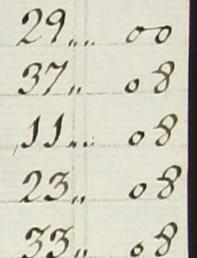 29,,,, 00
37,, 08
11,,,, 08
23,, 08
33,, 08